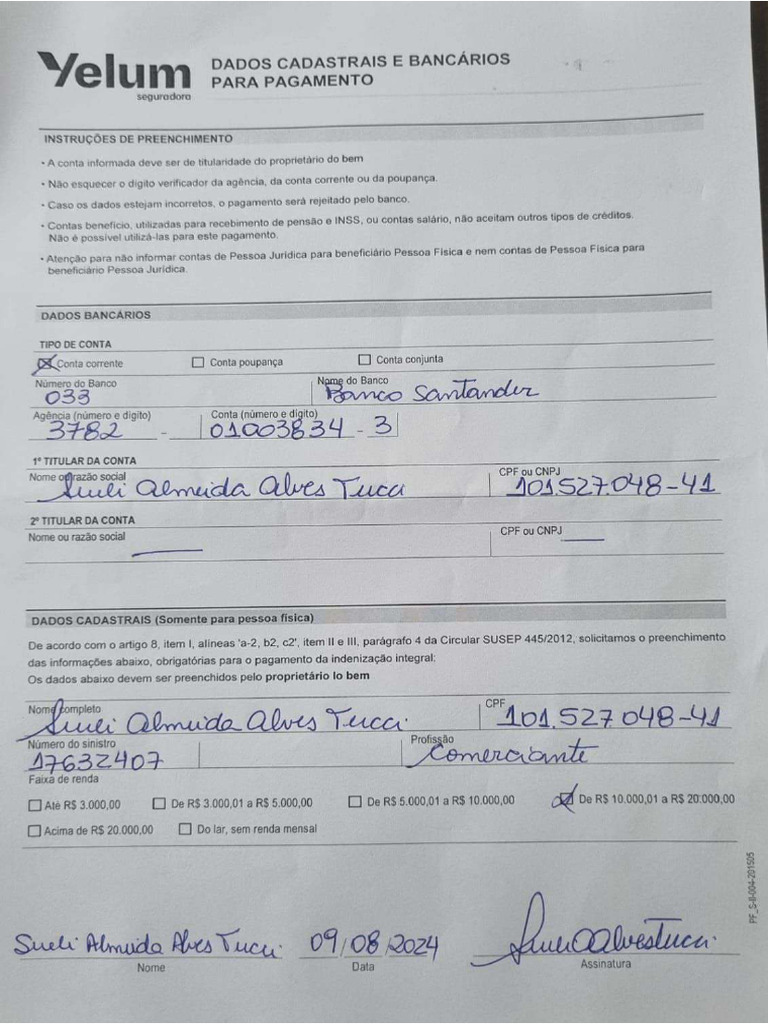 Yelum
seguradora
DADOS CADASTRAIS E BANCÁRIOS
PARA PAGAMENTO
INSTRUÇÕES DE PREENCHIMENTO
• A conta informada deve ser de titularidade do proprietário do bem
• Não esquecer o digito verificador da agência, da conta corrente ou da poupança.
• Caso os dados estejam incorretos, o pagamento será rejeitado pelo banco.
• Contas beneficio, utilizadas para recebimento de pensão e INSS, ou contas salário, não aceitam outros tipos de créditos.
Não é possível utilizá-las para este pagamento.
• Atenção para não informar contas de Pessoa Jurídica para beneficiário Pessoa Física e nem contas de Pessoa Física para
beneficiário Pessoa Jurídica.
DADOS BANCÁRIOS
TIPO DE CONTA
Conta corrente Conta poupança Conta conjunta
Número do Banco Nome do Banco
033 Banco Santander
Agência (número e digito) Conta (número e digito)
3782 - 01003834 - 3
1º TITULAR DA CONTA
Nome ou razão social CPF ou CNPJ
Sueli Almeida Alves Tucci 101.527.048-41
2º TITULAR DA CONTA
Nome ou razão social CPF ou CNPJ
DADOS CADASTRAIS (Somente para pessoa fisica)
De acordo com o artigo 8, item I, alíneas 'a-2, b2, c2', item II e III, parágrafo 4 da Circular SUSEP 445/2012, solicitamos o preenchimento
das informações abaixo, obrigatórias para o pagamento da indenização integral:
Os dados abaixo devem ser preenchidos pelo proprietário lo bem
Nome completo CPF
Sueli Almeida Alves Tucci. 101.527.048-41
Número do sinistro Profissão
17632407 Comerciante
Faixa de renda
Até R$ 3.000,00 De R$ 3.000,01 a R$ 5.000,00 De R$ 5.000,01 a R$ 10.000,00 De R$ 10.000,01 a R$ 20.000,00
Acima de R$ 20.000,00 Do lar, sem renda mensal
PF_S-II-004-201505
Sueli Almeida Alves Tucci. 09/08/2024 Sueli A Alves Tucci
Nome Data Assinatura